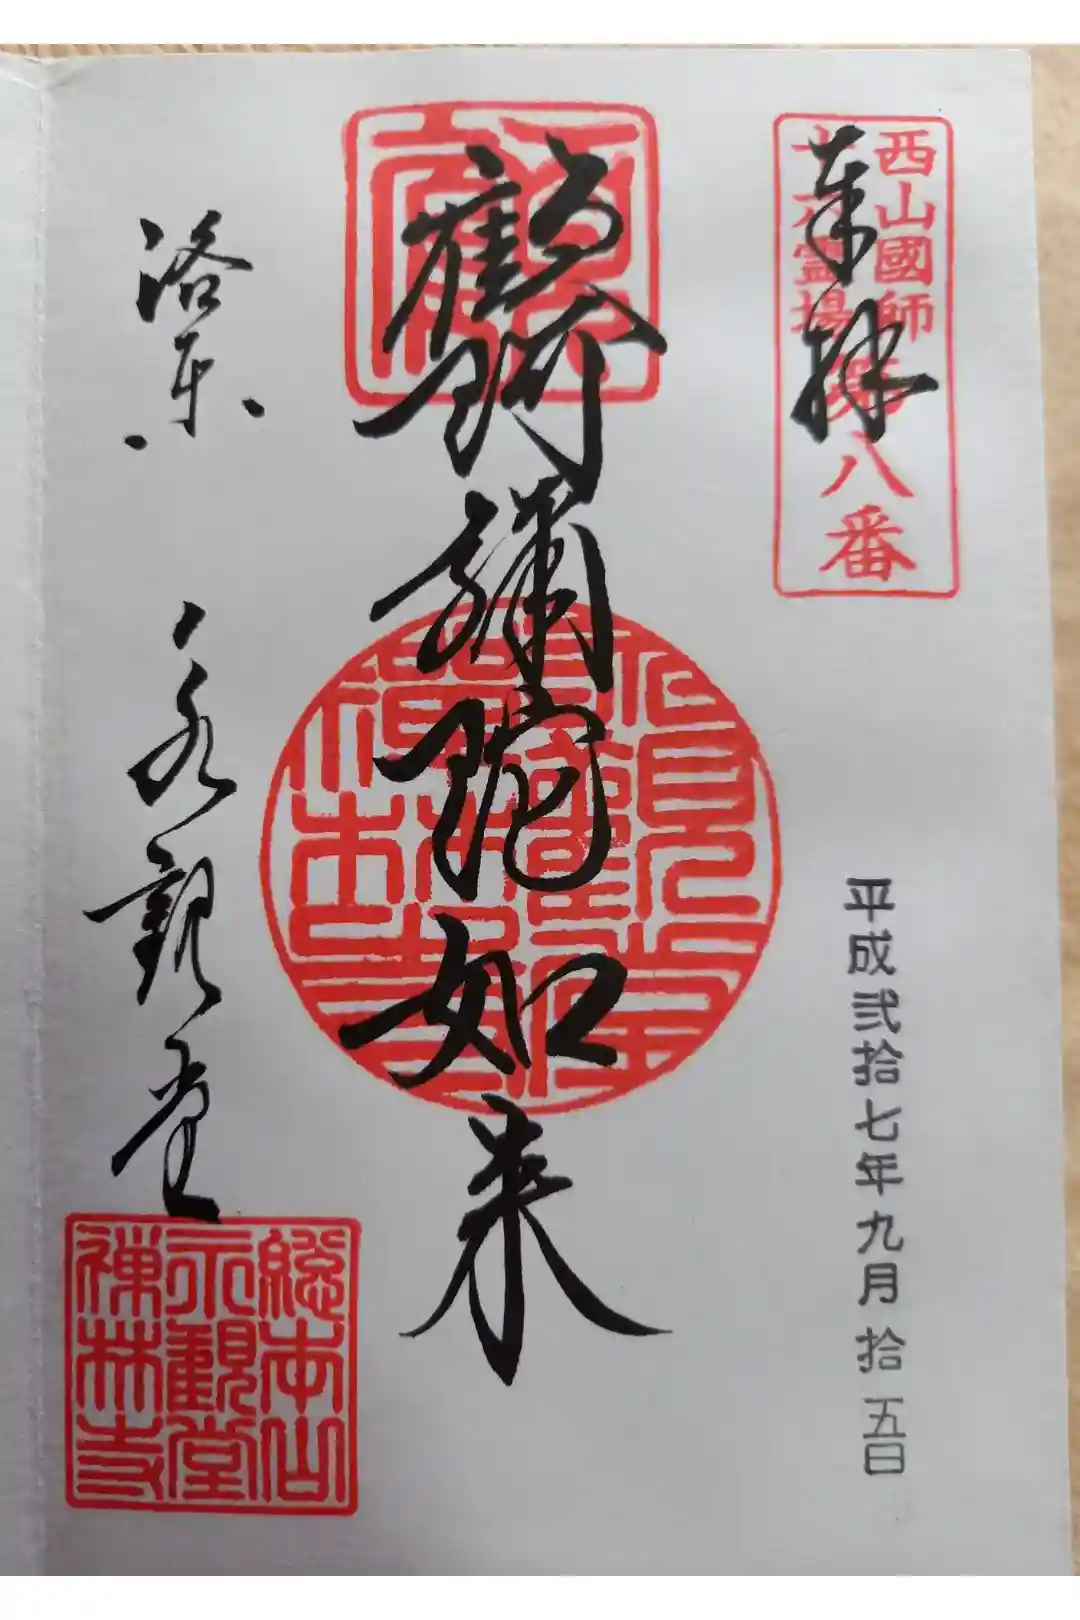 西山國師
十六霊場
第八番
奉拝
平成弐拾七年九月拾五日
顧阿彌陀如来
洛東 永観堂
総本山
永観堂
禅林寺